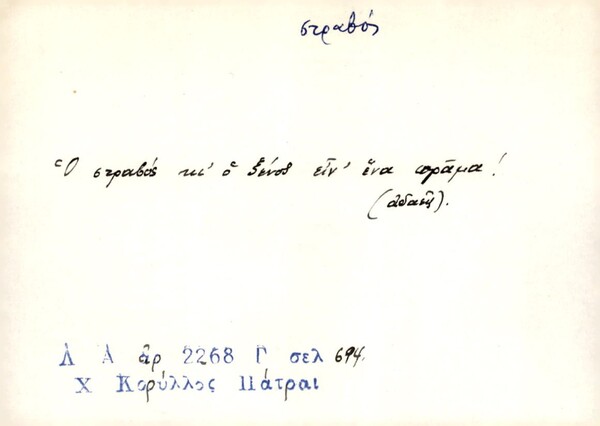 στραβός
Ὁ στραβός κι' ὁ ξένος εἶν' ἕνα πρᾶμα!
(ἀδαής).
Λ Α ἀρ 2268 Γ σελ 694.
Χ Κορύλλος Πάτραι